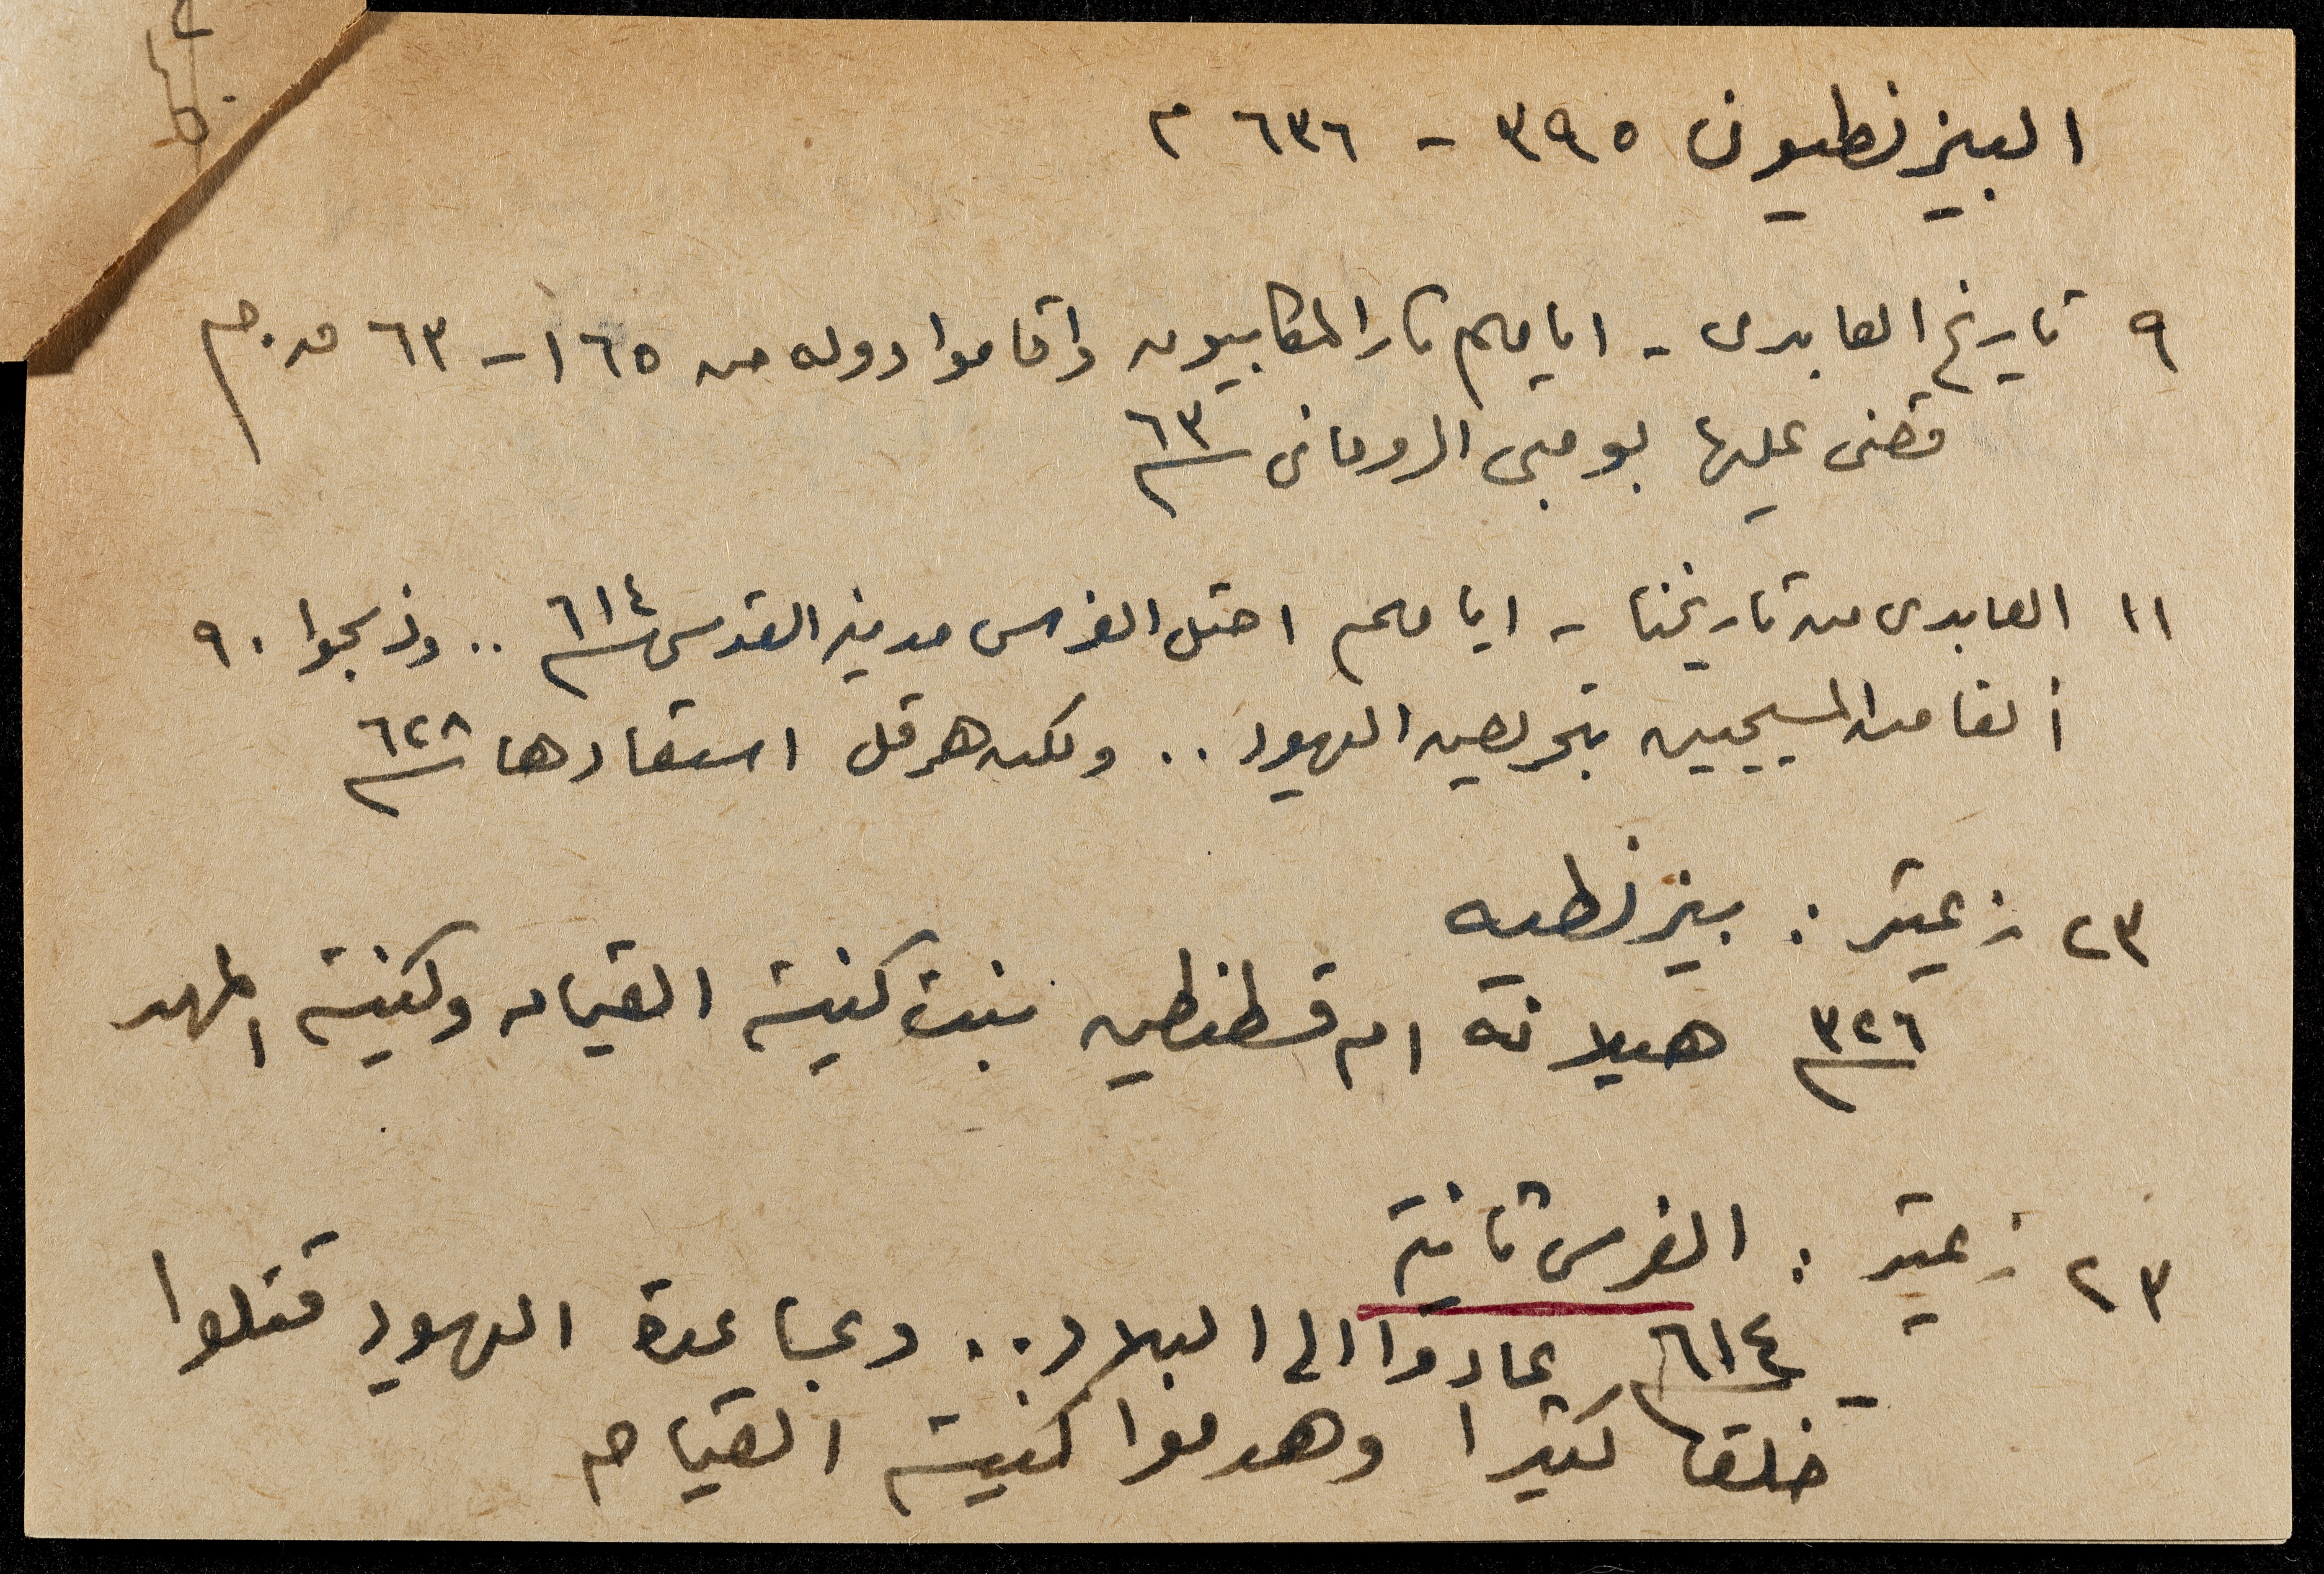 البيزنطيون ٣٩٥ - ٦٣٦ م
٩ تاريخ العابدى - ايامهم ثار المكابيون واقاموا دوله من ١٦٥ - ٦٣ ق.م
قضى عليها بومبى الرومانى ٦٣
١١ العابدى من تاريخنا - ايامهم احتل الفرس مدينه القدس ٦١٤ .. وذبحوا ٩٠
ألفا من المسيحيين بتحريض اليهود .. ولكن هرقل استعادها ٦٢٨
٢٣ زعيتر : بيزنطيه
٣٢٦ هيلانه ام قسطنطين بنت كنيسة القيامه وكنيسة المهد
٢٣ زعيتر : الفرس ثانية
- ٦١٤ عادوا الى البلاد .. وبمساعدة اليهود قتلوا
خلقا كثيرا وهدموا كنيسة القيامه